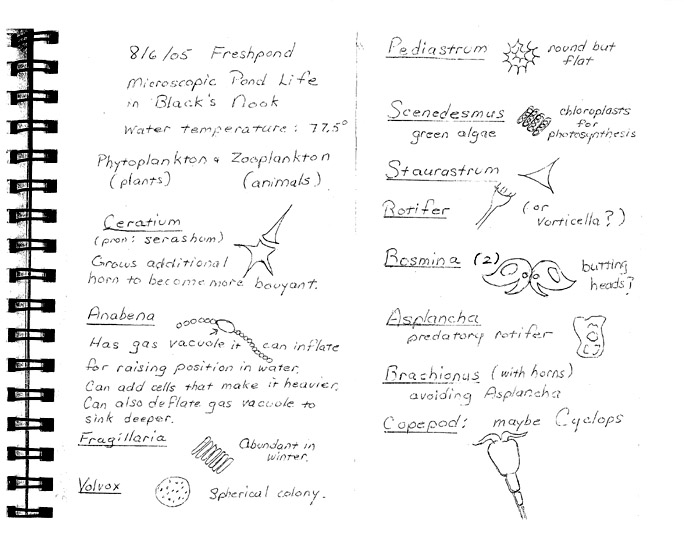 8/6/05 Freshpond
Microscopic Pond Life
in Black's Nook
Water temperature: 77.5°
Phytoplankton & Zooplankton
(plants) (animals)
Ceratium
(pron: serashum)
Grows additional
horn to become more bouyant.
Anabena
Has gas vacuole it can inflate
for raising position in water.
Can add cells that make it heavier.
Can also deflate gas vacuole to
sink deeper.
Fragillaria
Abundant in
winter.
Volvox
Spherical colony.
Pediastrum
round but
flat
Scenedesmus
green algae
chloroplasts
for
photosynthesis
Staurastrum
Rotifer
(or
vorticella?)
Bosmina (2)
butting
heads?
Asplancha
predatory rotifer
Brachionus (with horns)
avoiding Asplancha
Copepod: maybe Cyclops